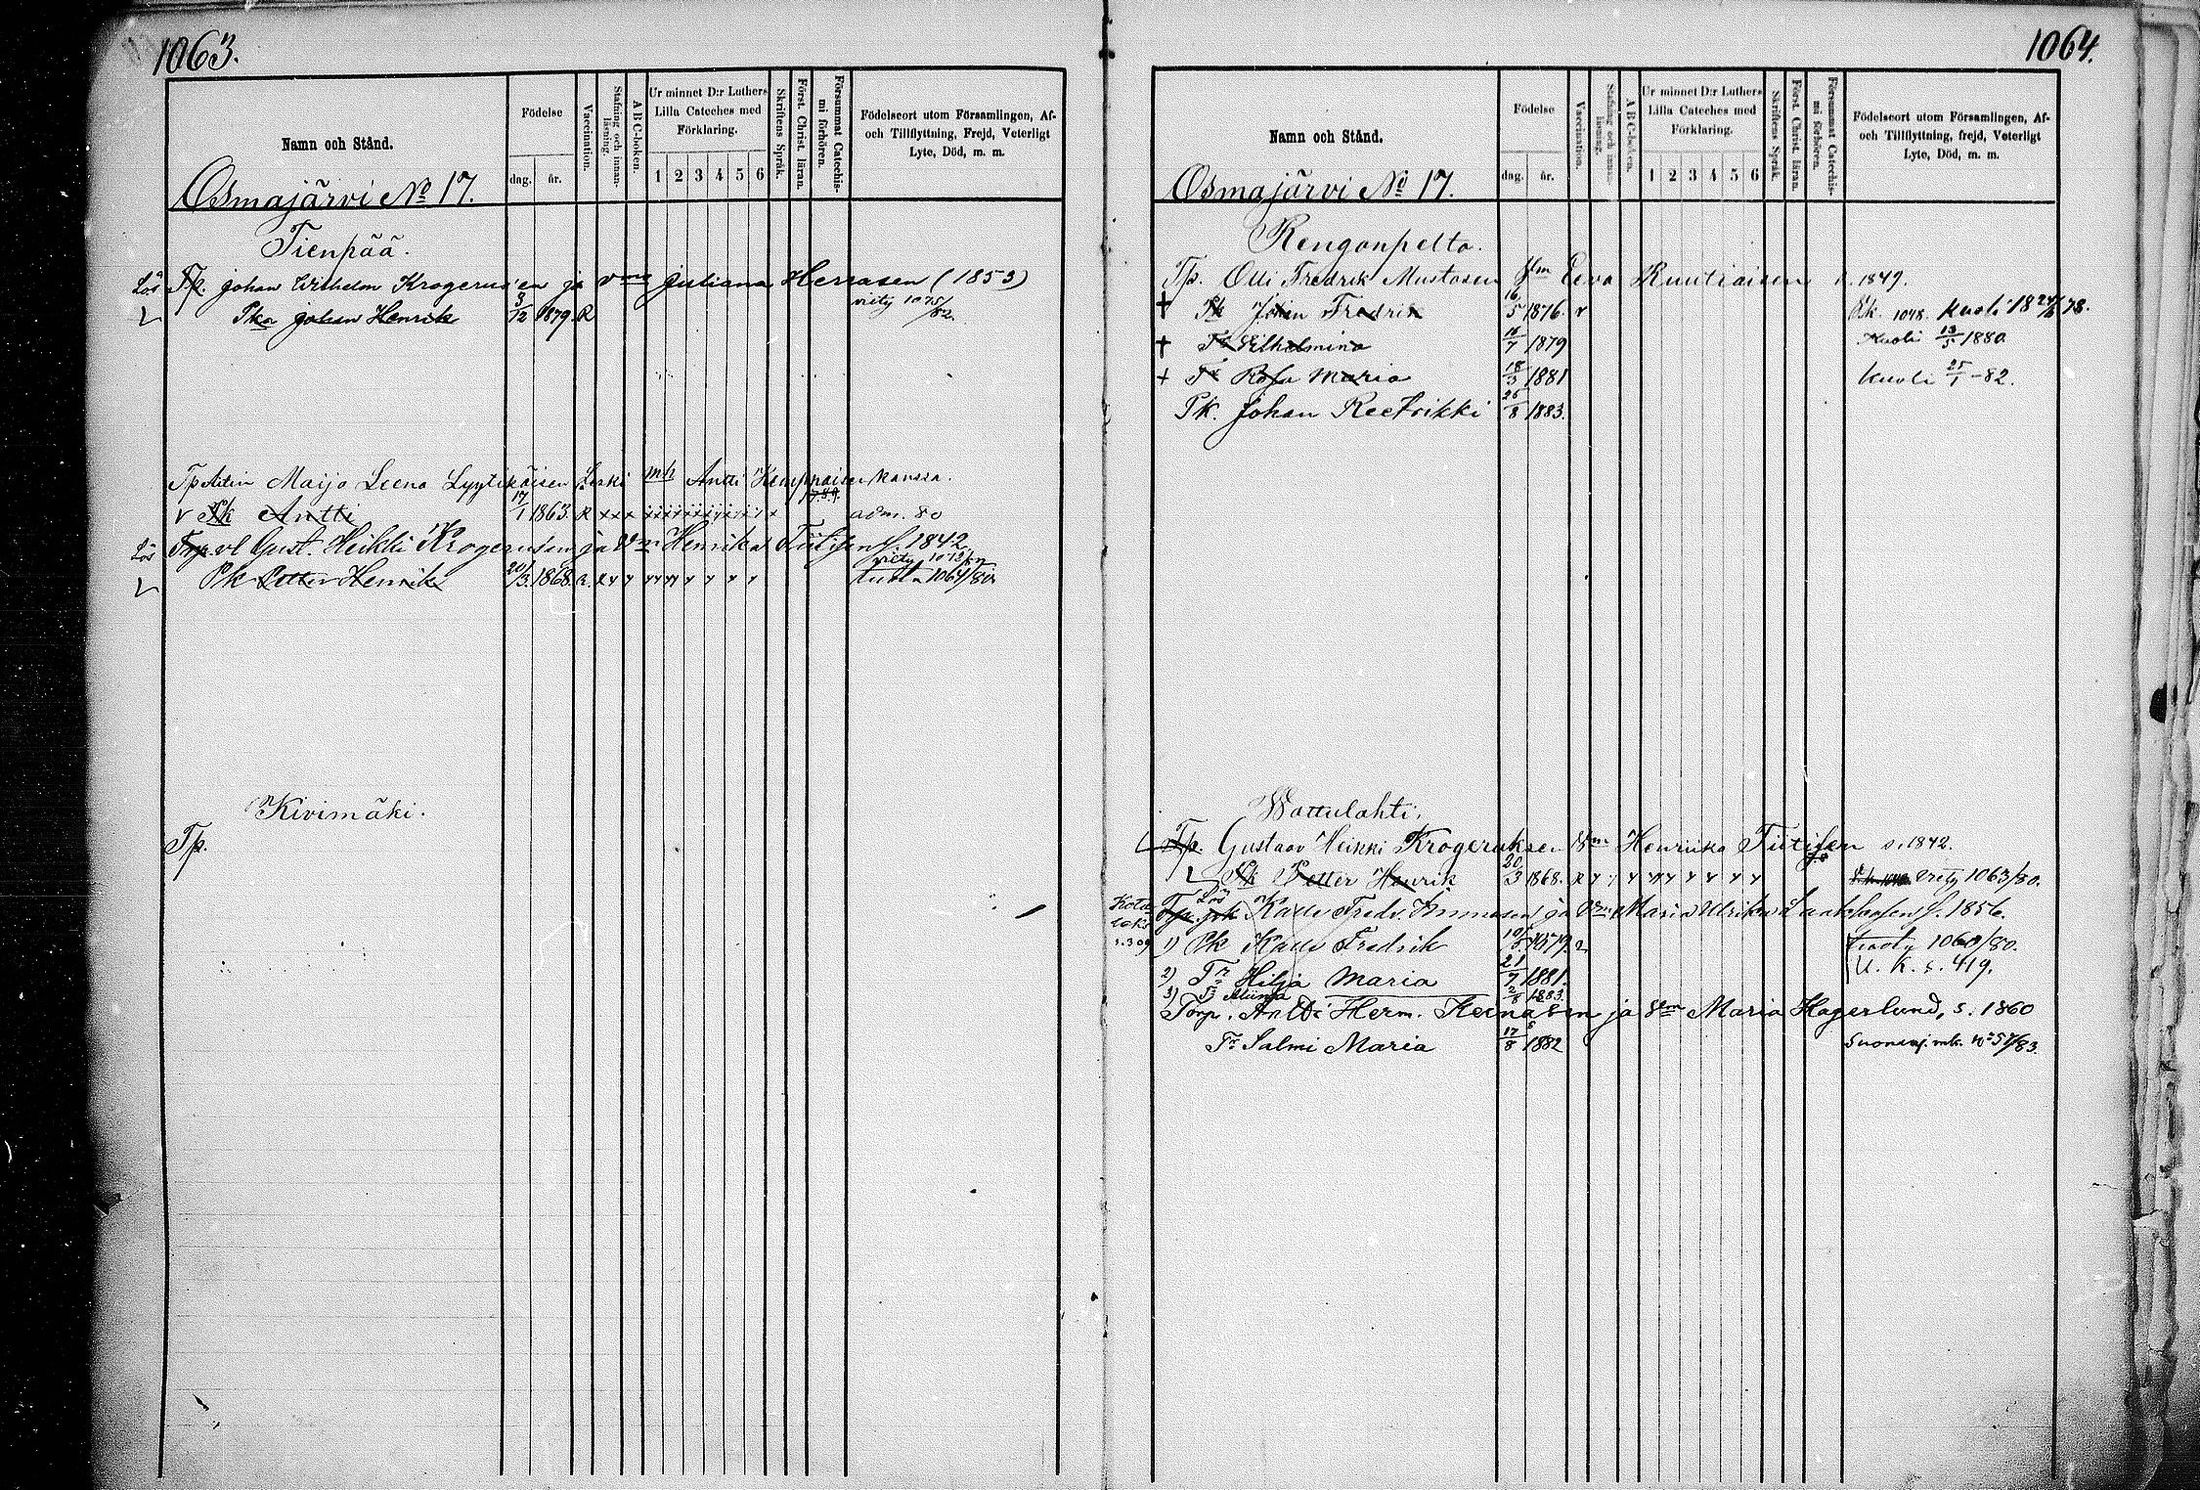 1063.
Namn och Stånd.
Födelse
dag.
år.
Vaccination.
Stafning och innanläsning.
A B C-boken.
Ur minnet D:r Luthers
Lilla Cateches med
Förklaring.
1 2 3 4 5 6
Skriftens Språk.
Först. Christ. läran.
Försummat Catechismi förhören.
Födelseort utom Församlingen, Af-
och Tillflyttning, Frejd, Veterligt
Lyte, Död, m. m.
Osmajärvi No 17.
Tienpää.
Lös Tp. Johan Wilhelm Krogerus'en ja vmo Juliana Herrasen (1853)
Pka Johan Henrik 3/12 1879. R erity 1075/82.
Tp Maija Leena Lyytikäisen Leski mh Antti Kemppaisen kanssa.
v Pk Antti 17/1 1863. R x x x adm. 80
Lös Gust. Heikki Krogeruksen ja Henrika Tiitisen s. 1842
Pk Petter Henrik 20/3 1868. 1064/80.
Kivimäki.
Tp.
1064.
Namn och Stånd.
Födelse
dag.
år.
Vaccination.
Stafning och innanläsning.
A B C-boken.
Ur minnet D:r Luthers
Lilla Cateches med
Förklaring.
1 2 3 4 5 6
Skriftens Språk.
Först. Christ. läran.
Försummat Catechismi förhören.
Födelseort utom Församlingen, Af-
och Tillflyttning, frejd, Veterligt
Lyte, Död, m. m.
Osmajärvi No 17.
Renganpelto.
Tp. Olli Fredrik Mustosen Vm Eeva Ruutiaisen s. 1849.
† Pk Johan Fredrik 16/5 1876. v Rk. 1048. Kuoli 18 78.
† Wilhelmina 16/7 1879 Kuoli 13/5 1880
† Rosa Maria 18/3 1881 Kuoli 25/1 -82.
Pk. Johan Reetrikki 26/8 1883.
Wattulahti.
Tp. Gustaav Heikki Krogeruksen Vm Henriika Tiitisen s. 1842.
Pk Petter Henrik 20/3 1868. R erity 1063/80.
Lös
Kalle Fredr. Immosen ja Maria Ulrika s. 1856.
s. 309
1) Pk Kalle Fredrik 1879. 1060/80.
2) Tr Hilja Maria 21/7 1881. U. K. s. 419.
3) Tr 2/8 1883.
Torp. Antti Herm. Heinasen ja Vm Maria Hagerlund, s. 1860
Tr Salmi Maria 17/8 1882 Suonenj. mk. No 57/83.